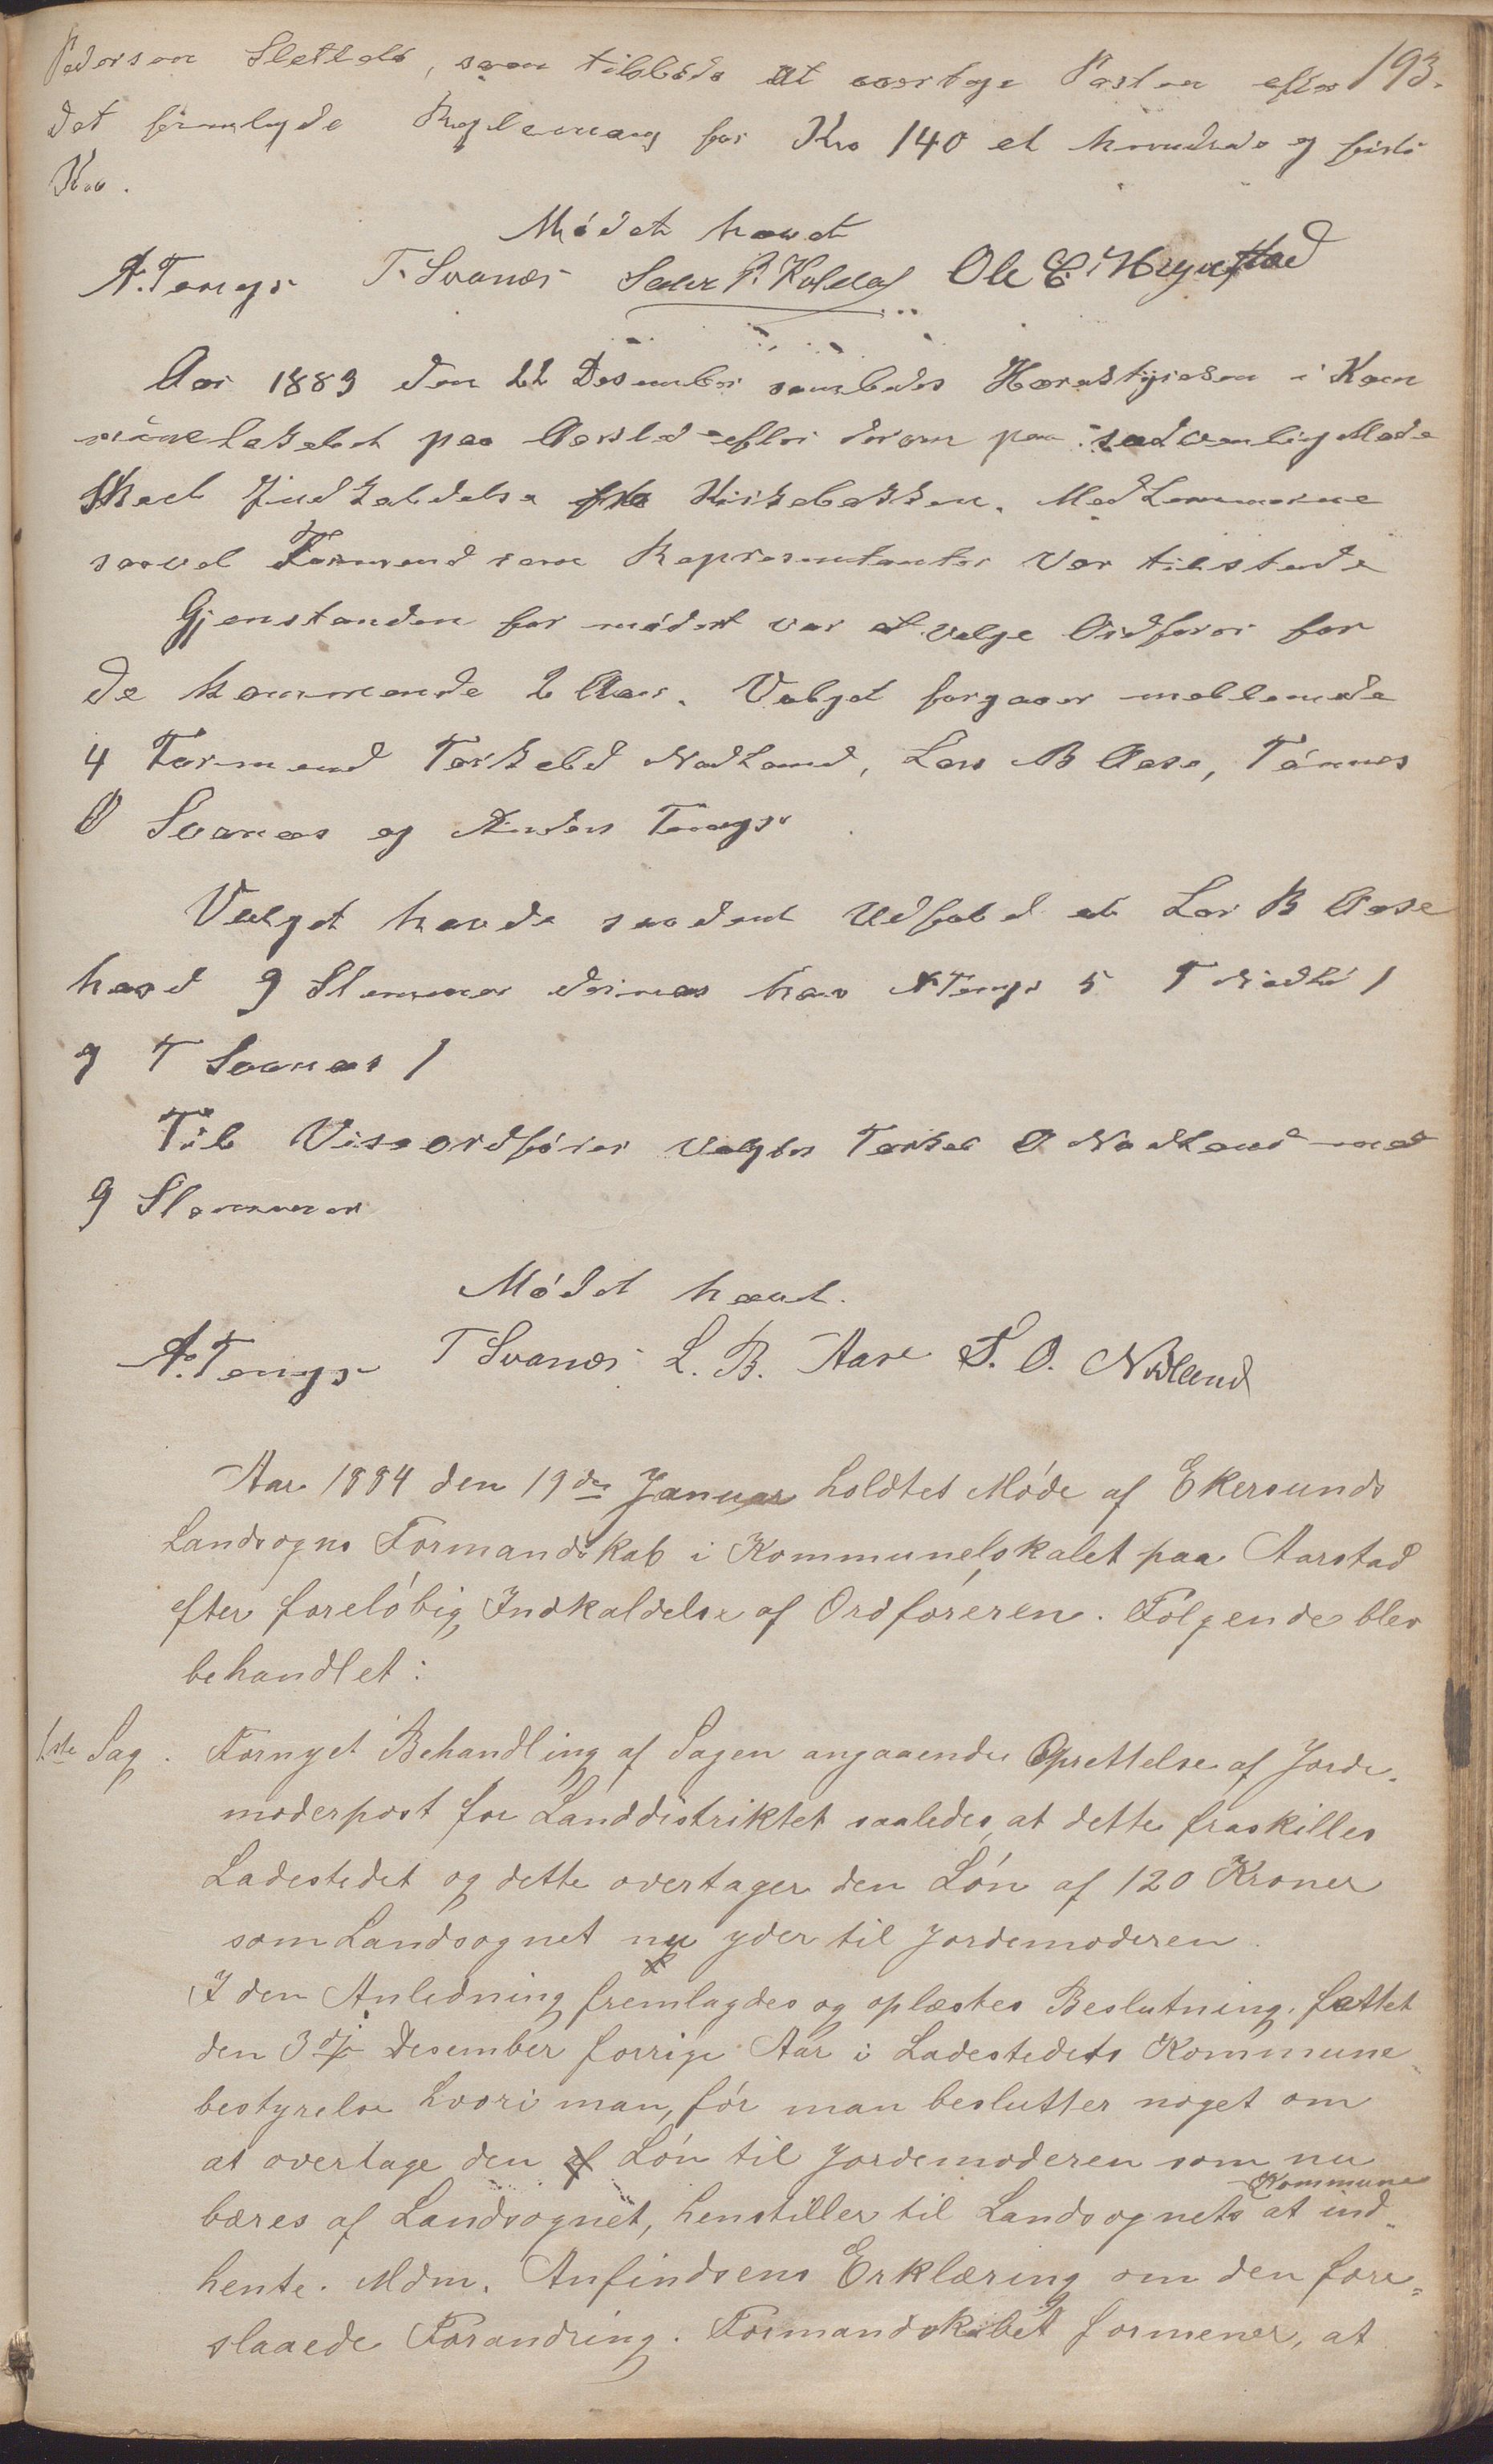 Pedersen Slettebø, som tilbøds at overtage Posten efter 193.
det fremlagde Reglemang for Kro 140 et hundrede og firti
Kro.
Mødet hævet
A. Tengs T. Svanes Ole E.
Aar 1883 den 22 Desember samledes Herredstyrelsen i Kom
munelokalet paa Aarstad efter derom paa sedvanlig Maade
skeet Indkaldelse fra Kirkebakken. Medlemmerne
saavel Formænd som Representanter var tilstede
Gjenstanden for mødet var at velge Ordfører for
de kommende 2 Aar. Valget foregaar mellem de
4 Formænd Torkeld Nodland, Lars B Aase, Tønnes
O Svanes og Anders Tengs
Valget havde saadant Udfald at Lar B Aase
havd 9 Stemmer dernæs hav A Tengs 5 T Nodld 1
og T Svanes 1
Til Viseordfører valgtes Torkel O Nodland med
9 Stemmer
Mødet hævet.
A. Tengs T Svanes L. B. Aase T. O. Nodland
Aar 1884 den 19de Januar holdtes Møde af Ekersunds
Landsogns Formandskab i Kommunelokalet paa Aarstad
efter foreløbig Indkaldelse af Ordføreren. Følgende blev
behandlet:
1ste Sag. Fornyet Behandling af Sagen angaaende Oprettelse af Jorde-
moderpost for Landdistriktet saaledes, at dette fraskilles
Ladestedet og dette overtager den Løn af 120 Kroner
som Landsognet nu yder til Jordemoderen.
I den Anledning fremlagdes og oplæstes Beslutning, fattet
den 3die Desember forrige Aar i Ladestedets Kommune
bestyrelse hvori man, før man beslutter noget om
at overtage den af Løn til Jordemoderen som nu
Kommune
bæres af Landsognet, henstiller til Landsognets at ind-
hente Mdm. Anfindsens Erklæring om den fore-
slaaede Forandring. Formandskabet formener, at